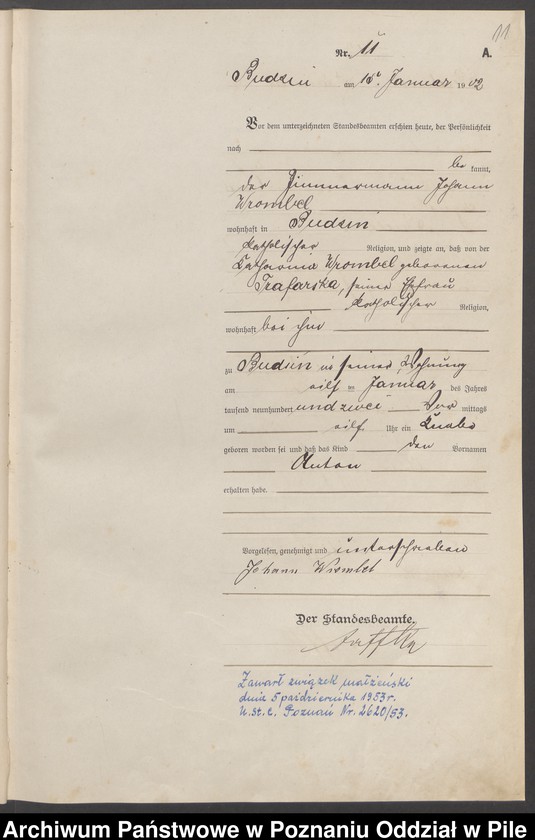 11
Nr. 11 A.
Budsin am 15ᵗ Januar 1902
Vor dem unterzeichneten Standesbeamten erschien heute, der Persönlichkeit
nach
be kannt,
der Zimmermann Johann
Wrombel
wohnhaft in Budsin
katholischer Religion, und zeigte an, daß von der
Katharina Wrombel geborenen
Trafarska, seiner Ehefrau
katholischer Religion,
wohnhaft bei ihm
zu Budsin in seiner Wohnung
am eilf ten Januar des Jahres
tausend neunhundert und zwei Vor mittags
um eilf Uhr ein Knabe
geboren worden sei und daß das Kind den Vornamen
Anton
erhalten habe.
Vorgelesen, genehmigt und unterschrieben
Johann Wrombel
Der Standesbeamte.
Zawarł związek małżeński
dnia 5 października 1953 r.
U.St.C. Poznań Nr. 2620/53.
Archiwum Państwowe w Poznaniu Oddział w Pile